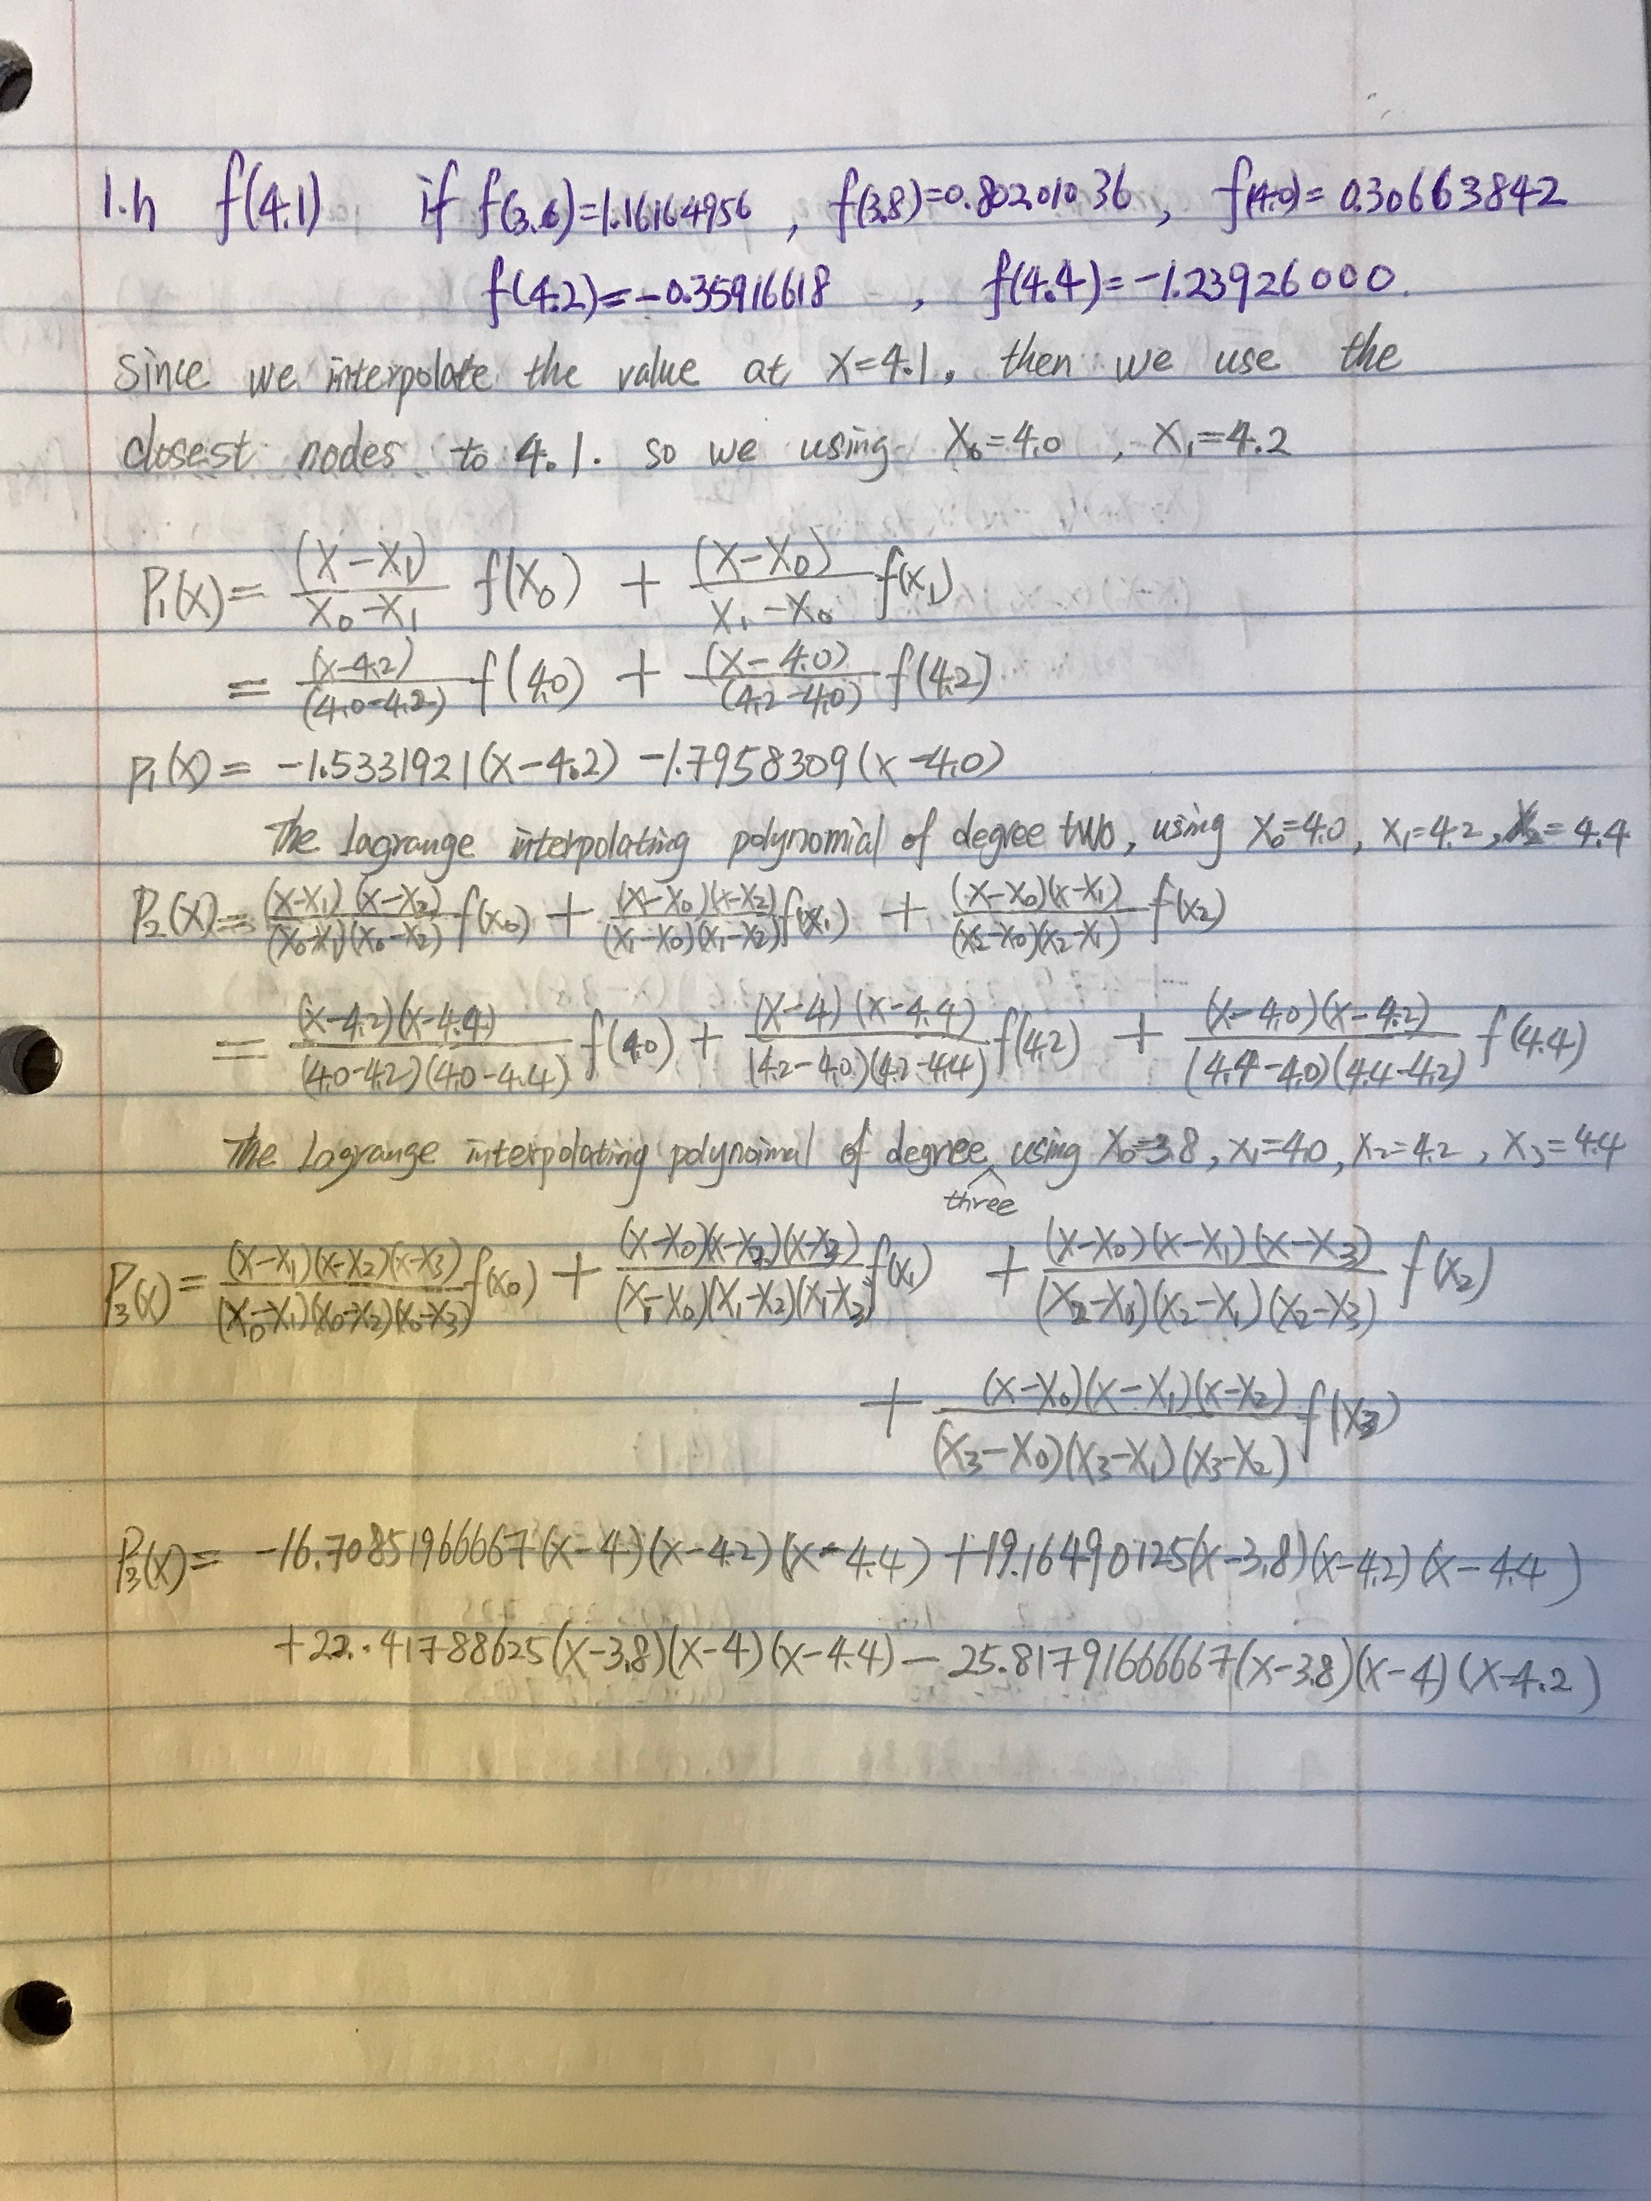 1.h f(4.1) if f(3.6)=1.16164956 , f(3.8)=0.80201036 , f(4.0)= 0.30663842
f(4.2)=-0.35916618 , f(4.4)=-1.23926000.
Since we interpolate the value at x=4.1, then we use the
closest nodes to 4.1. so we using x₀=4.0 , x₁=4.2
P₁(x)= (x-x₁)/(x₀-x₁) f(x₀) + (x-x₀)/(x₁-x₀) f(x₁)
= (x-4.2)/(4.0-4.2) f(4.0) + (x-4.0)/(4.2-4.0) f(4.2)
P₁(x)= -1.5331921(x-4.2) -1.7958309(x-4.0)
The Lagrange interpolating polynomial of degree two, using x₀=4.0, x₁=4.2, x₂=4.4
P₂(x)= (x-x₁)(x-x₂)/(x₀-x₁)(x₀-x₂) f(x₀) + (x-x₀)(x-x₂)/(x₁-x₀)(x₁-x₂) f(x₁) + (x-x₀)(x-x₁)/(x₂-x₀)(x₂-x₁) f(x₂)
= (x-4.2)(x-4.4)/(4.0-4.2)(4.0-4.4) f(4.0) + (x-4)(x-4.4)/(4.2-4.0)(4.2-4.4) f(4.2) + (x-4.0)(x-4.2)/(4.4-4.0)(4.4-4.2) f(4.4)
The Lagrange interpolating polynoimal of degree three using x₀=3.8, x₁=4.0, x₂=4.2, x₃=4.4
P₃(x)= (x-x₁)(x-x₂)(x-x₃)/(x₀-x₁)(x₀-x₂)(x₀-x₃) f(x₀) + (x-x₀)(x-x₂)(x-x₃)/(x₁-x₀)(x₁-x₂)(x₁-x₃) f(x₁) + (x-x₀)(x-x₁)(x-x₃)/(x₂-x₀)(x₂-x₁)(x₂-x₃) f(x₂)
+ (x-x₀)(x-x₁)(x-x₂)/(x₃-x₀)(x₃-x₁)(x₃-x₂) f(x₃)
P₃(x)= -16.70851966667(x-4)(x-4.2)(x-4.4)+19.16490125(x-3.8)(x-4.2)(x-4.4)
+22.41788625(x-3.8)(x-4)(x-4.4)-25.81791666667(x-3.8)(x-4)(x-4.2)